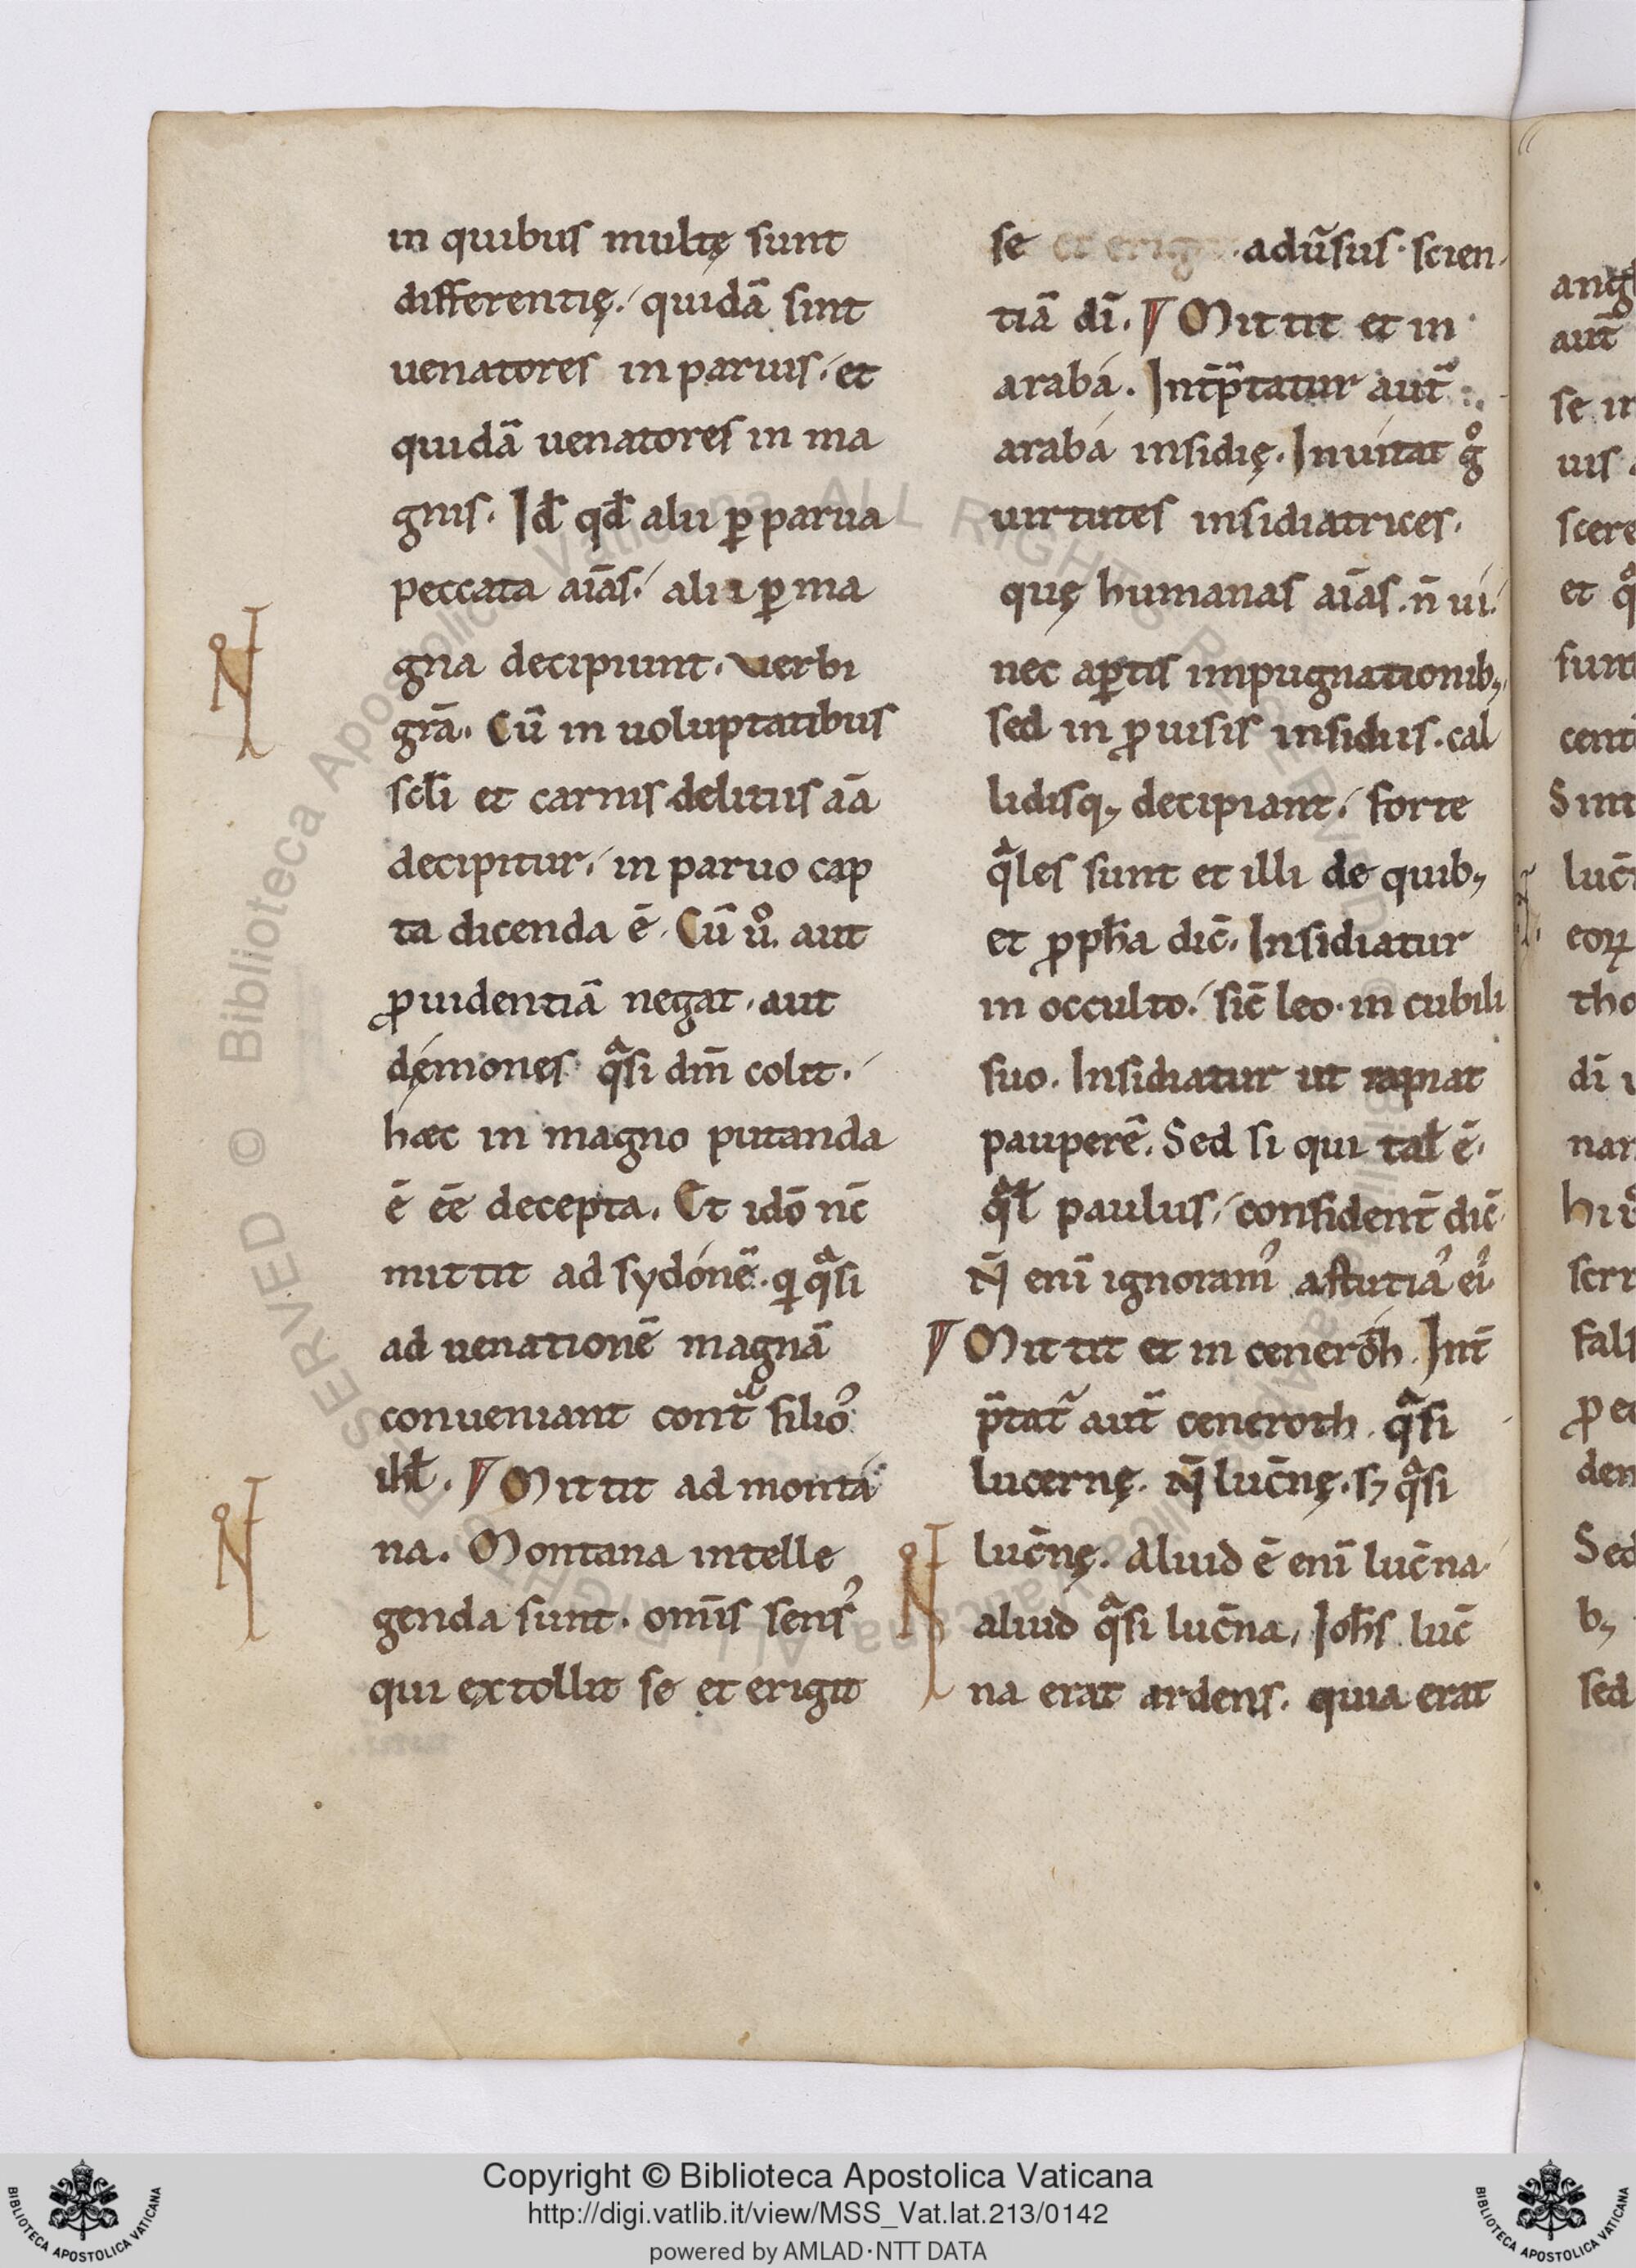 in quibus multę sunt
differentię. quidā sunt
uenatores in paruis. et
quidā uenatores in ma
gnis. Id qđ alii ꝑ parua
peccata aīas. alii ꝑ ma
gna decipiunt. uerbi
grā. Cū in uoluptatibus
scłi et carnis delitiis aīa
decipitur. in paruo cap
ta dicenda ē. Cū uͦ. aut
ꝓuidentiā negat. aut
dęmones qͣsi dm̄ colit.
hæc in magno putanda
ē eē decepta. Et idō nc̄
mittit ad sydónē. qͥ qͣsi
ad uenationē magnā
conueniant contͣ filioˀ
iħl. ¶ Mittit ad montá
na. Montana intelle
genda sunt. omīs sensˀ
qui extollit se et erigit
se et erigit adūsus scien
tiā dī. ¶ Mittit et in
arabá. Int̄p̄tatur aut̄
arabá insidię. Inuitat gͦ
uirtutes insidiatrices.
quę humanas aīas. n̄ ui.
nec aꝑtis impugnationib;
sed in ꝓuisis insidiis. cal
lidisq; decipiant. forte
qͣles sunt et illi de quib;
et ꝓpħa dic̄. Insidiatur
in occulto. sic̄ leo in cubili
suo. Insidiatur ut rapiat
pauperē. Sed si qui tał ē.
qͣł paulus. confident̄ dic̄
N̄ enī ignoramˀ astutiaˀ eiˀ
¶ Mittit et in ceneróth. Int̄
p̄tat̄ aut̄ ceneroth. qͣsi
lucernę. N̄ luc̄nę. s; qͣsi
luc̄nę. Aliud ē enī luc̄na.
aliud qͣsi luc̄na. Ioħs luc̄
na erat ardens. quia erat
ang
aut̄
se in
uis
scere
et qͦ
funt
cent
Sint
luc̄
eoꝝ
tho
dī
nar
scri
fals
ꝓ ec
den
Sed
b;
sed
Biblioteca Apostolica Vaticana ALL RIGHTS RESERVED ©
Copyright © Biblioteca Apostolica Vaticana
http://digi.vatlib.it/view/MSS_Vat.lat.213/0142
powered by AMLAD·NTT DATA
BIBLIOTECA APOSTOLICA VATICANA
BIBLIOTECA APOSTOLICA VATICANA